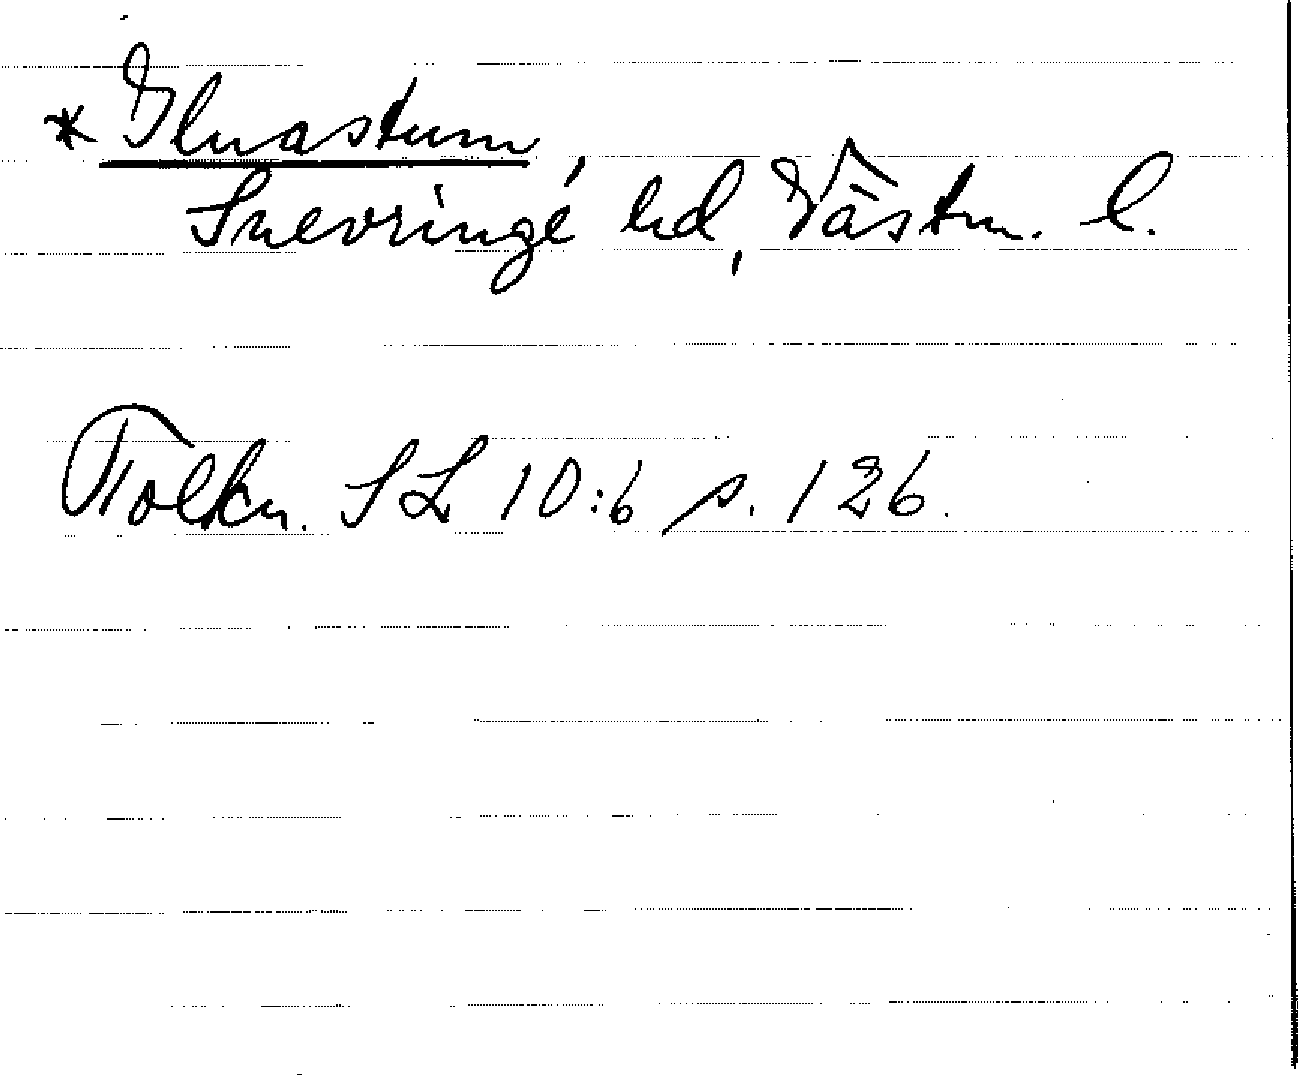 * Ilnastum,
Snevringe hd, Västm. l.
Tolkn. SL 10:6 s. 126.